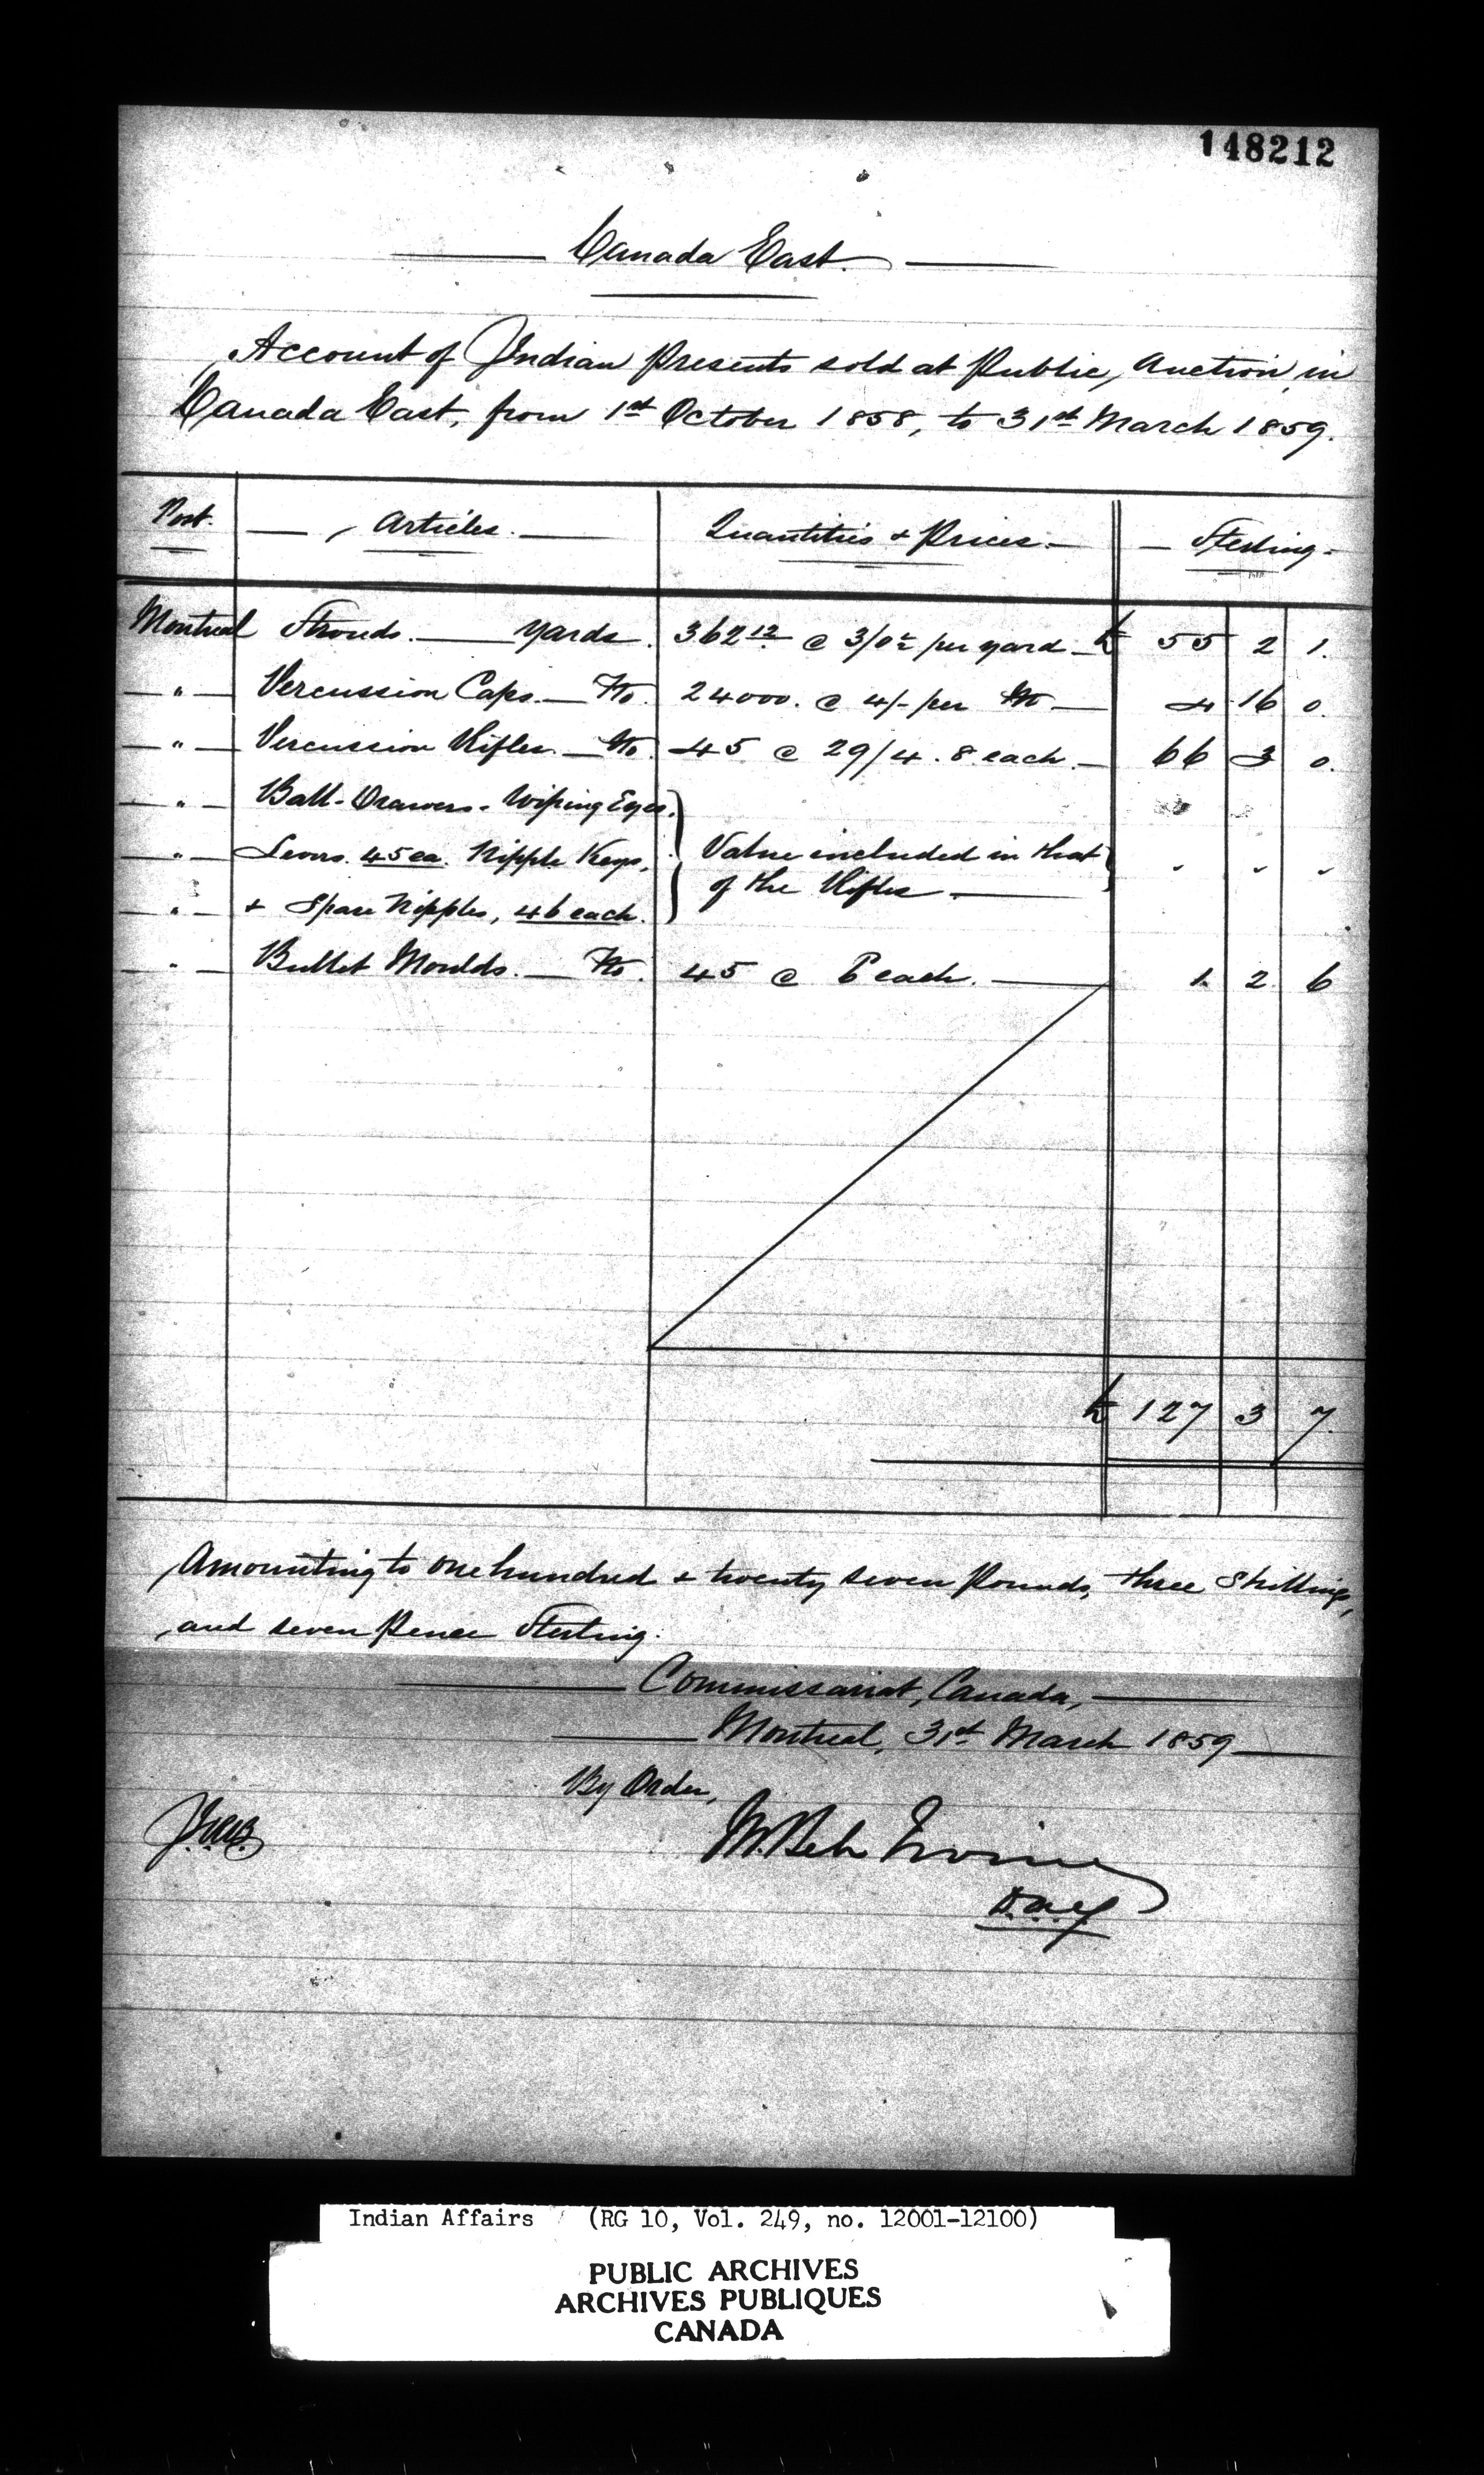 148212
Canada East.
Account of Indian Presents sold at Public Auction in
Canada East, from 1st October 1858, to 31st March 1859.
Post. Articles. Quantities & Prices. Sterling.
Montreal Strouds. yards. 362 12 @ 3/0 ½ per yard £ 55 2 1.
" Percussion Caps. No. 24000. @ 4/- per M 4 16 0.
" Percussion Rifles. No. 45 @ 29/4.8 each. 66 3 0.
" Ball-Drawers - Wiping Eyes.
" 45 ea. Nipple Keys, Value included in that " " "
of the Rifles
" & Spare Nipples, 46 each.
" Bullet Moulds. No. 45 @ 6 each. 1. 2. 6
£ 127 3 7.
Amounting to one hundred & twenty seven Pounds, three Shillings,
and seven Pence Sterling.
Commissariat, Canada,
Montreal, 31st March 1859
By Order,
Irvine
Indian Affairs (RG 10, Vol. 249, no. 12001-12100)
PUBLIC ARCHIVES
ARCHIVES PUBLIQUES
CANADA